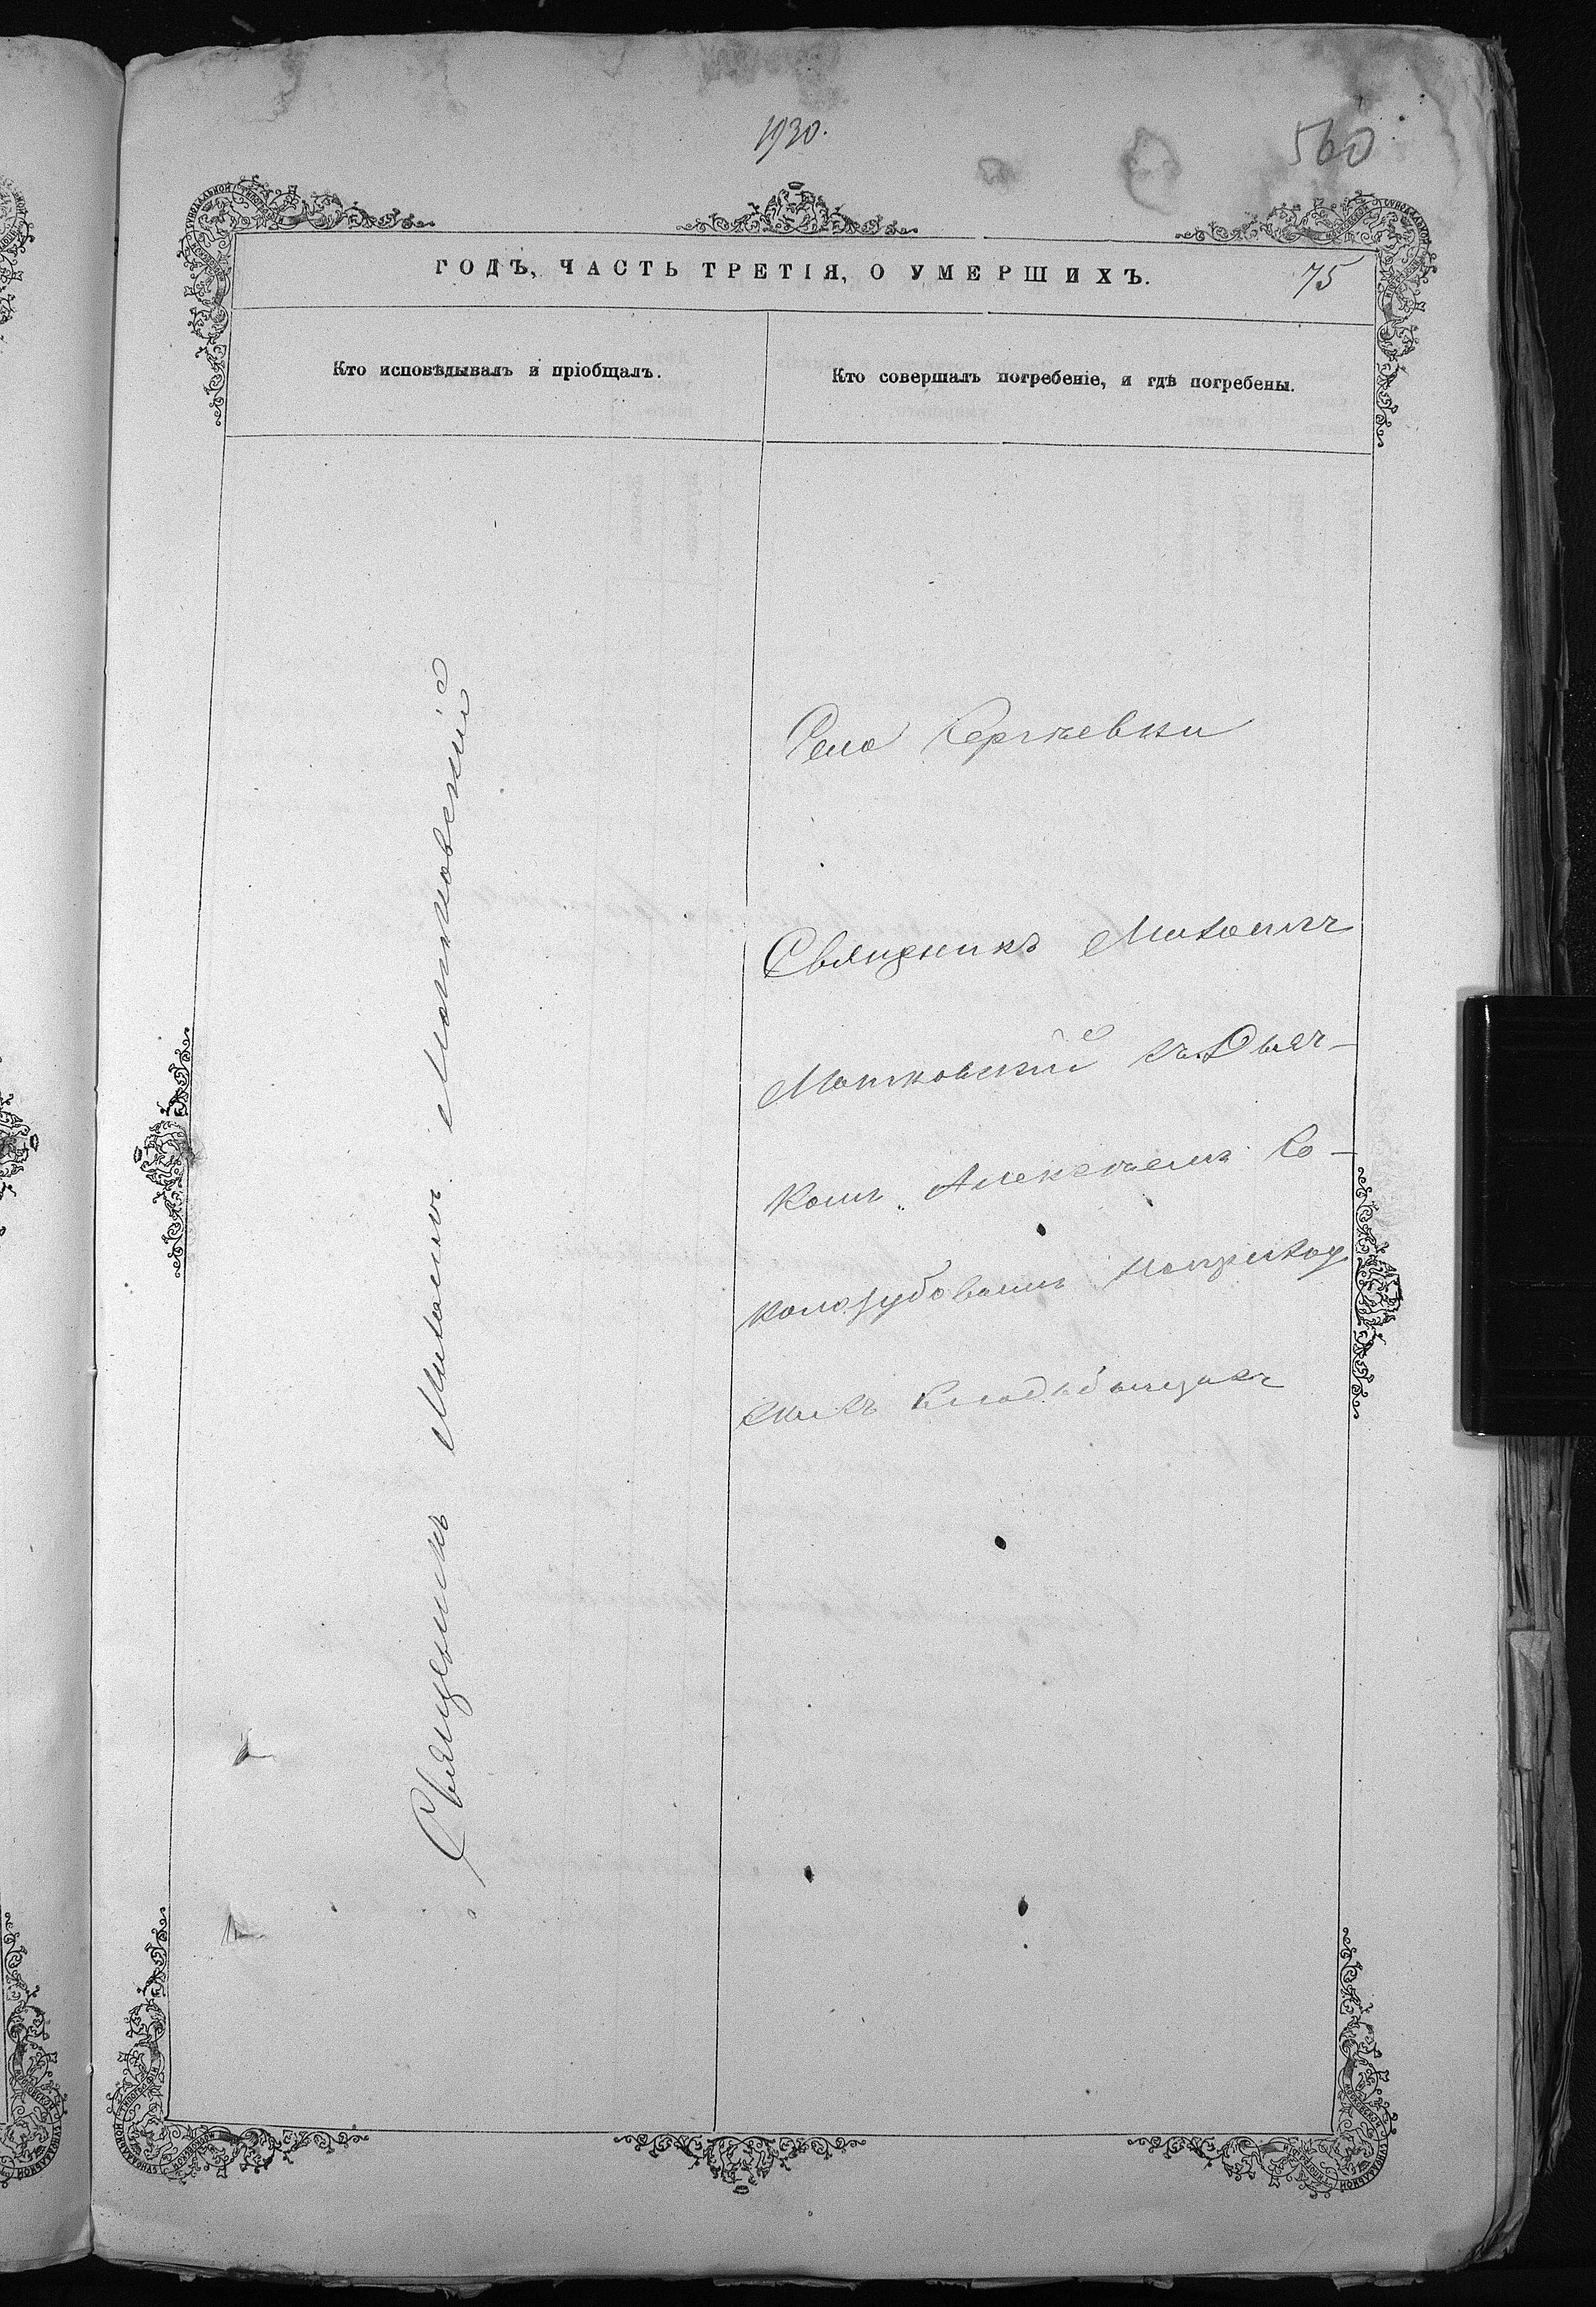 1930.
560
ГОДЪ, ЧАСТЬ ТРЕТІЯ, О УМЕРШИХЪ.
75
Кто исповѣдывалъ и пріобщалъ.
Кто совершалъ погребеніе, и гдѣ погребены.
Священникъ Михаилъ Мотковскій
Села Сергѣевки
Священикъ Михаилъ
Мотковскій съ Дьяч-
комъ Алексѣемъ Со-
колозубовымъ на приход
скихъ кладбищахъ